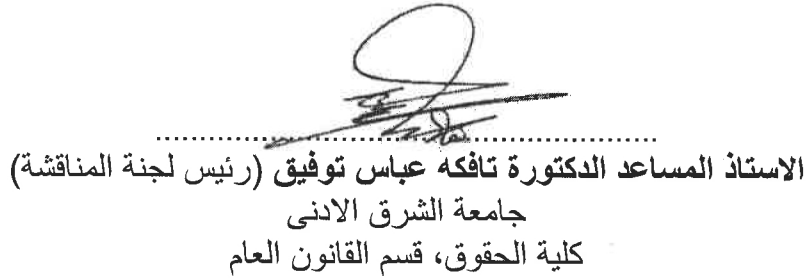 الاستاذ المساعد الدكتورة تافكه عباس توفيق (رئيس لجنة المناقشة)
جامعة الشرق الادنى
كلية الحقوق، قسم القانون العام